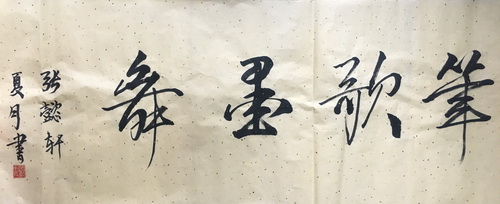 笔歌墨舞
张懿轩
夏月书